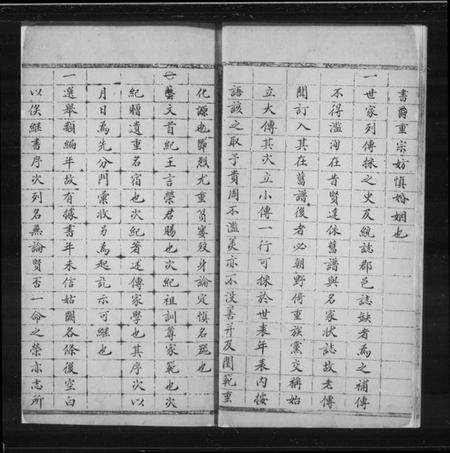 書爵重宗妨慎婚姻也
一世家列傳採之史及統誌郡邑誌缺者為之補傳
不得濫洵在昔賢達依舊譜與名家狀誌故老傳
聞訂入其在舊譜後者必朝野倚重族黨交稱始
立大傳其次立小傳一行可採於世表年表內按
語該之取予貴周不濫美亦不没善并及閨範重
化源也鄭烈尤重蓋致身論定慎名器也
一藝文首紀王言榮君賜也次紀祖訓尊家範也次
紀贈遺重名宿也次紀著述傳家學也其序次以
月日為先分門彙收另為起訖示可継也
一選舉類編年故有據書年未信姑闕各條後空白
以俟継書序次列名無論賢否一命之榮亦志所